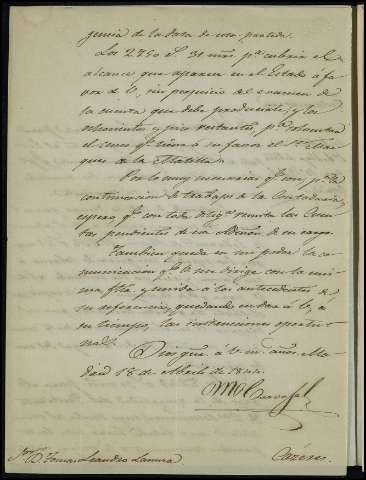 gencia de la data de esta partida.
Los 2750 r.s 31 mrs p.a cubrir el
alcance que aparece en el Estado á fa-
vor de V, sin perjuicio del examen de
la cuenta que debe producirle; y los
y pico restantes, p.a
el q.e tiene á su favor el S.or Mar-
ques de la Matilla.
Por lo muy necesarias q.e son p.a la
continuacion de trabajos de la Contaduria,
espero q.e con toda dilig.a remita las Cuen-
tas pendientes de esa Admon de su cargo.
Tambien queda en mi poder la co-
municacion q.e V. me dirige con la mis-
ma fha, y unida á los antecedentes de
su referencia, quedando en dar á V, á
su tiempo, las instrucciones oportu-
nas.
Dios gue. á V. m. años. Ma-
drid 18 de Abril de 184
M Carvajal
Sor. D. Tomas Leandro Lamura Cazeres.